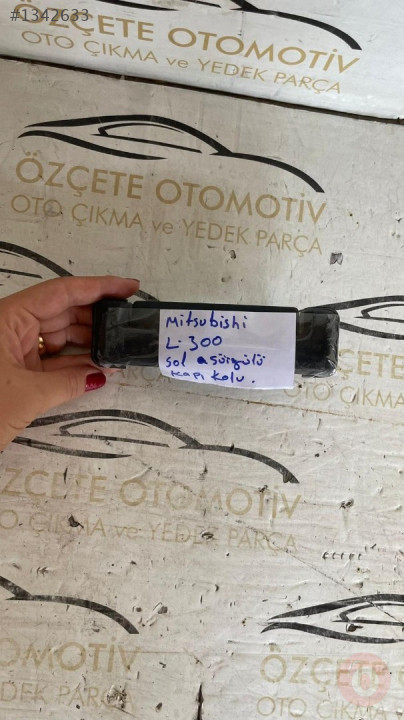 #1342633
ÖZÇETE OTOMOTİV
OTO ÇIKMA ve YEDEK PARÇA
ÖZÇETE OTOMOTİV
OTO ÇIKMA ve YEDEK PARÇA
Mitsubishi
L-300
Sol sürgülü
Kapı Kolu.
OTO ÇIKMA
ZÇETE OTOMOTİV
O ÇIKMA ve YEDEK PARÇA
OMOTİV
DEK PARÇA
ÖZÇETE
OTO ÇIKMA